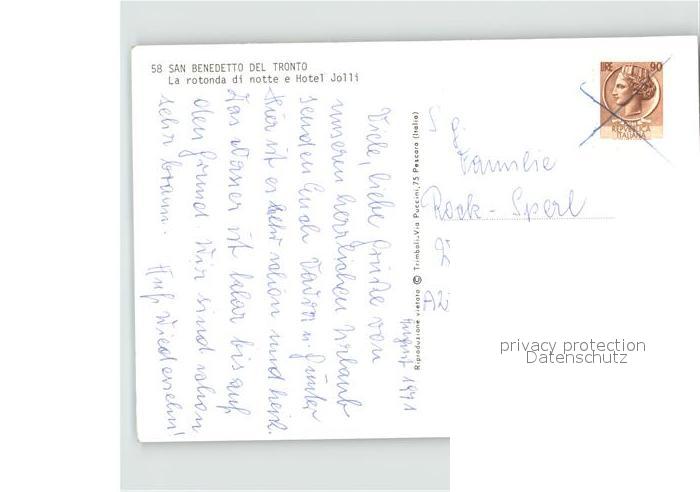 58 SAN BENEDETTO DEL TRONTO
La rotonda di notte e Hotel Jolli
LIRE 90
REPVBBLICA
ITALIANA
Familie
Rock - Sperl
Az
August 1971
Viele, liebe Grüße von
unseren herrlichen Urlaub
senden Euch u. Günter
Hier ist es sehr schön und heiß.
Das Wasser ist klar bis auf
den Grund. Wir sind schon
sehr braun. Auf Wiedersehn!
Riproduzione vietata © Trimboli-Via Puccini,75 Pescara (Italia)
privacy protection
Datenschutz